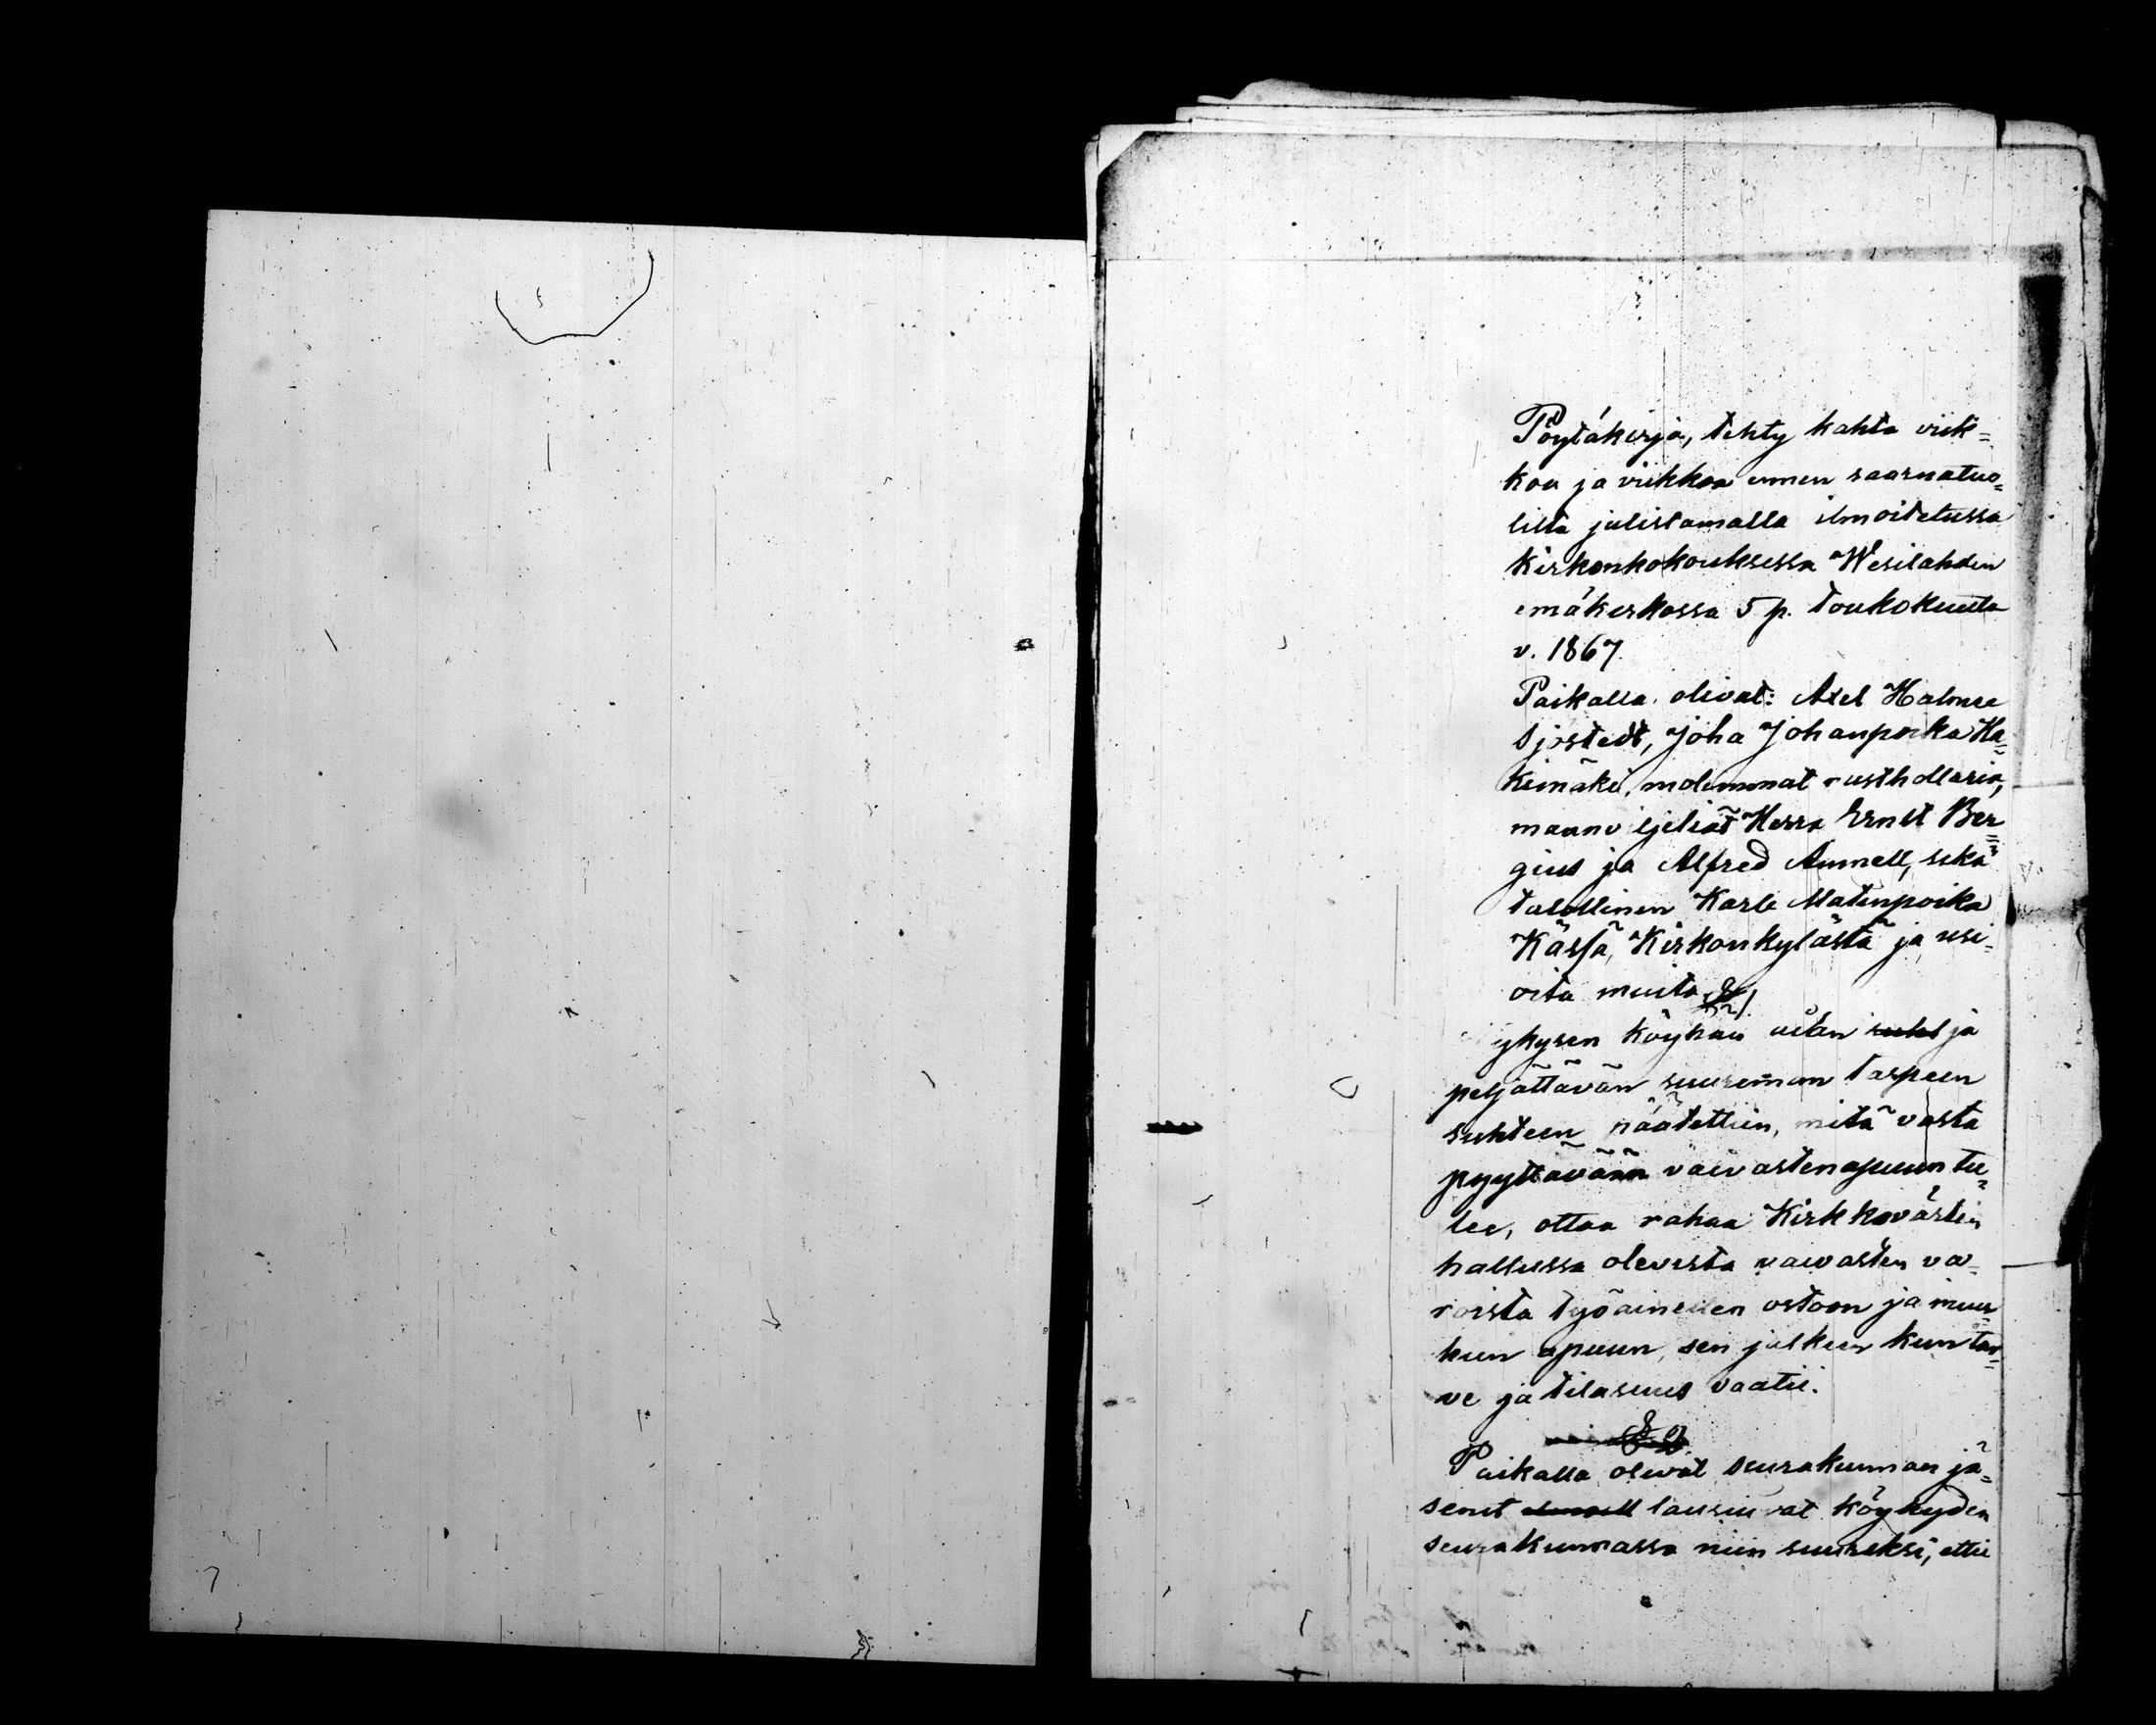 Pöytäkirja, tehty kahta viik=
koa ja viikkoa ennen saarnatuo=
lilta julistamalla ilmoitetussa
Kirkonkokouksessa Wesilahden
emäkirkossa 5 p. Toukokuuta
v. 1867.
Paikalla olivat: Axel Halmee
Sjöstedt, Joha Johanpoika Ha=
kimäki, molemmat rusthollaria,
maanviljeliät Herra Ernst Ber=
gius ja Alfred Annell, sekä
talollinen Karle Matinpoika
Kässä, Kirkonkylästä ja usi=
oita muita.
§ 1.
ykysen köyhän ajan ja
peljättävän suuremman tarpeen
suhteen päätettiin, mitä vasta
pyyttävään vaivastenapuun tu=
lee, ottaa rahaa Kirkkovärtin
hallussa olevista vaivasten va=
roista työaineiden ostoon ja muu=
hun apuun, sen jälkeen kun tar=
ve ja tilasuus vaatii.
§ 2.
Paikalla olevat seurakunnan jä=
senet lausuivat köyhyden
seurakunnassa niin suureksi, että